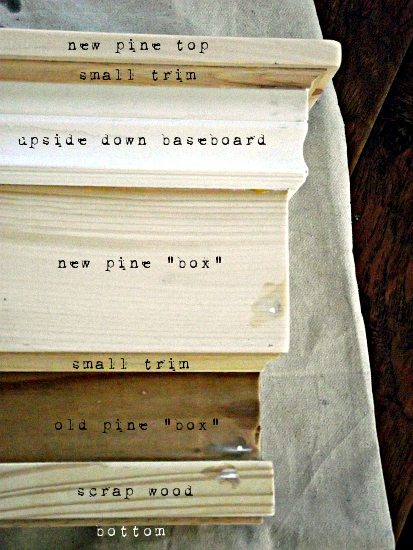 new pine top
small trim
upside down baseboard
new pine "box"
small trim
old pine "box"
scrap wood
bottom